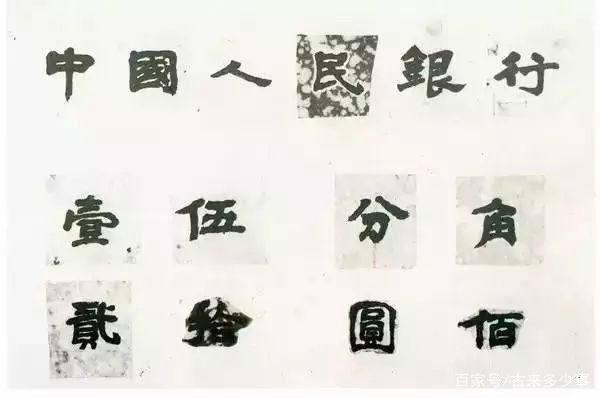 中國人民銀行
壹伍分角
貳拾圓佰
百家号/古来多少事